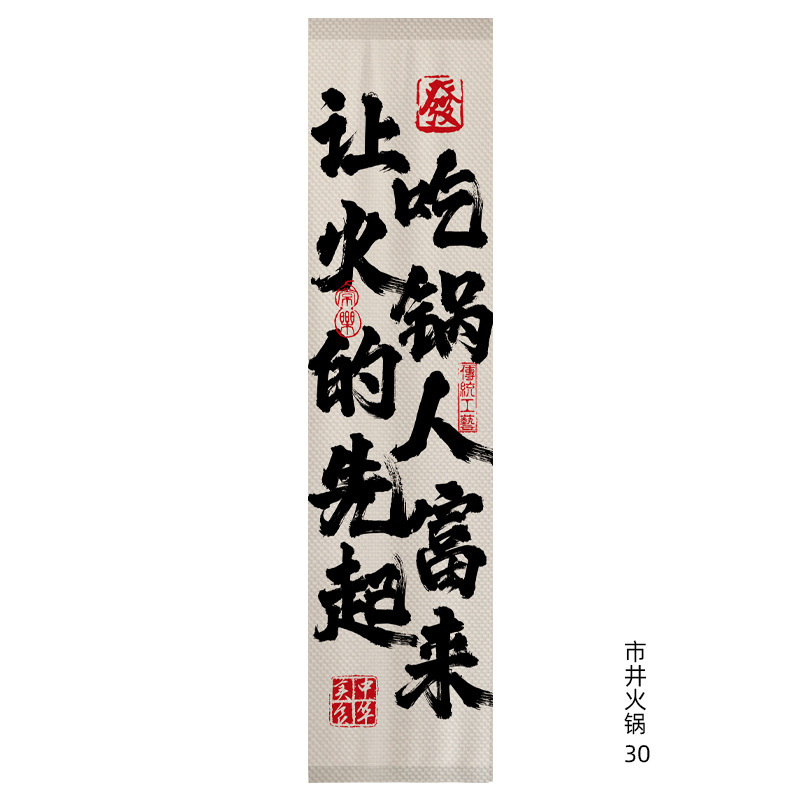 發
让吃
火锅
的人
先富
起来
常樂
傳統工藝
中华美食
市井火锅
30